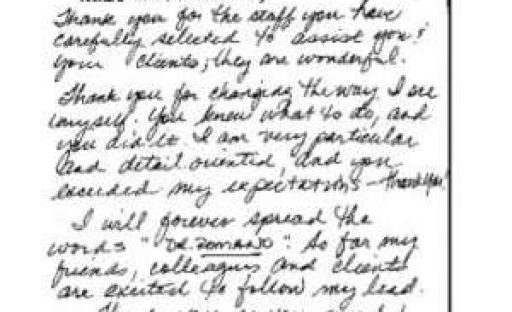 Thank you for the staff you have
carefully selected to assist you &
your clients; they are wonderful.
Thank you for changing the way I see
myself. You knew what to do, and
you did it. I am very particular
and detail oriented, and you
exceeded my expectations - thank you!
I will forever spread the
words "DR. ". So far my
friends, colleagues and clients
are excited to follow my lead.